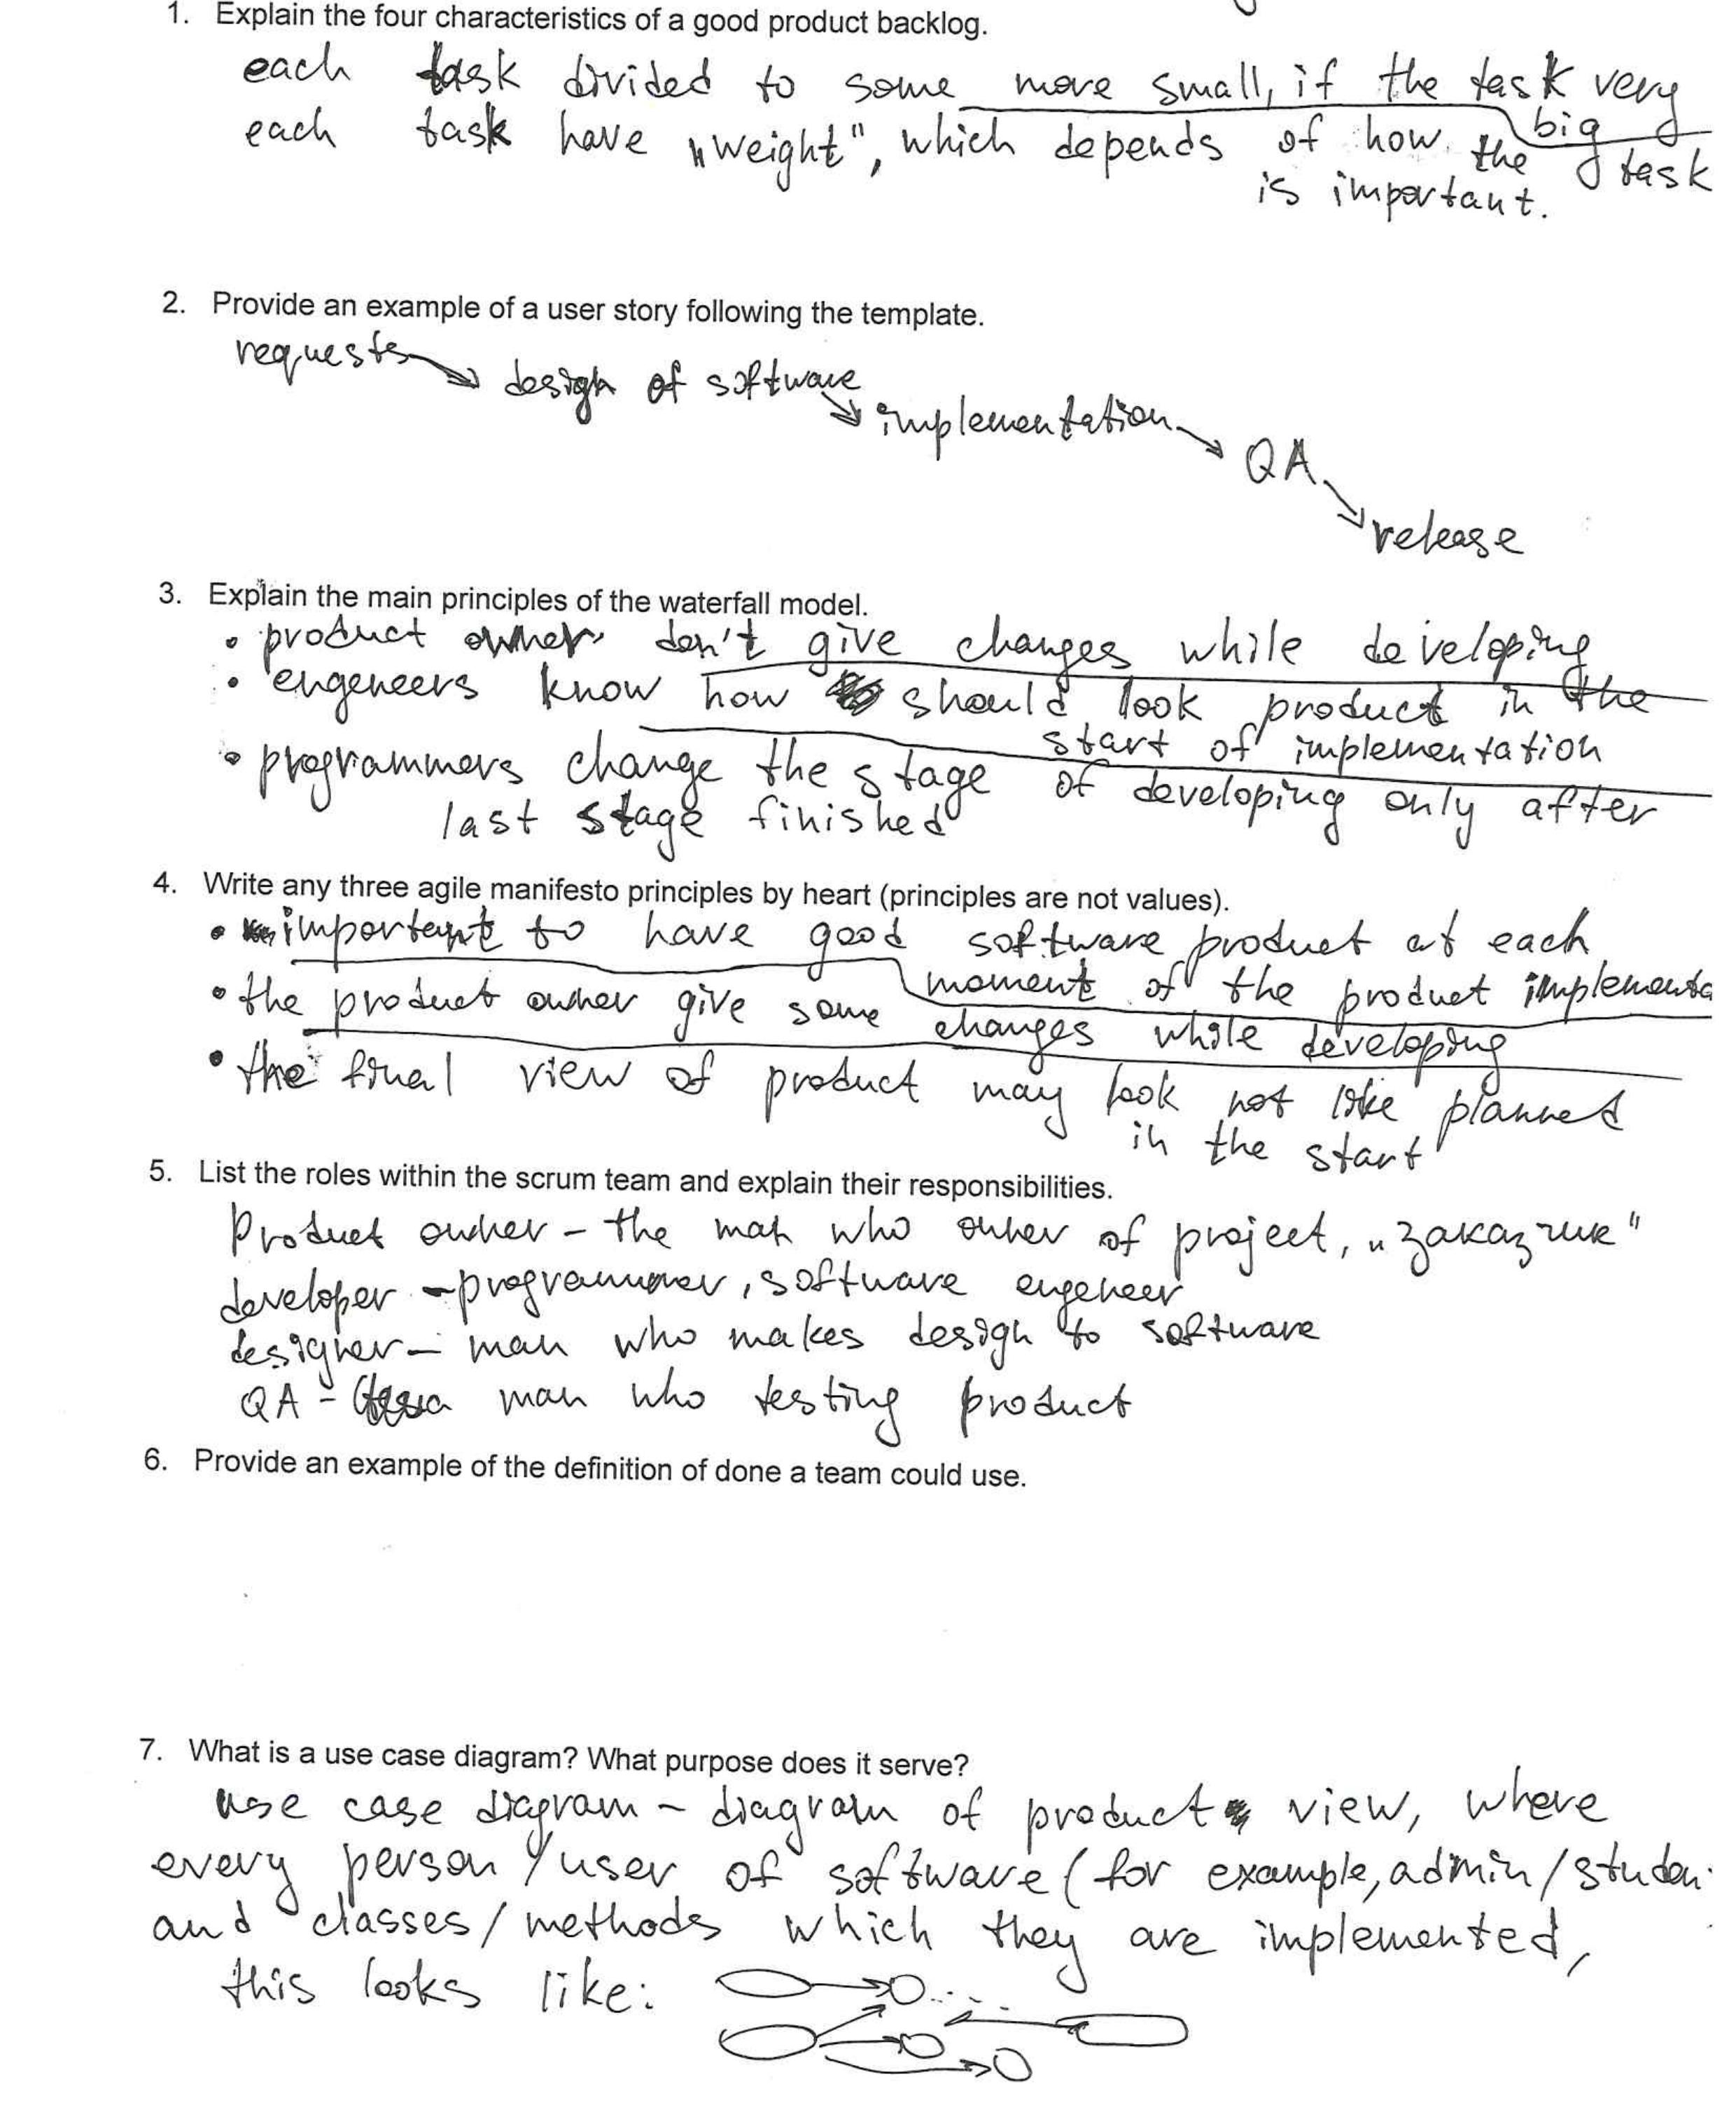 1. Explain the four characteristics of a good product backlog.
each task divided to some more small, if the task very
big
each task have „weight", which depends of how the task
is important.
2. Provide an example of a user story following the template.
requests
design of software
implementation
QA
release
3. Explain the main principles of the waterfall model.
• product owner don't give changes while developing
• engeneers know how should look product in the
start of implementation
• programmers change the stage of developing only after
last stage finished
4. Write any three agile manifesto principles by heart (principles are not values).
• important to have good software product at each
moment of the product implementa
• the product owner give some changes while developing
• the final view of product may look not like planned
in the start
5. List the roles within the scrum team and explain their responsibilities.
Product owner – the man who owner of project, „заказчик"
developer – programmer, software engeneer
designer – man who makes design to software
QA – man who testing product
6. Provide an example of the definition of done a team could use.
7. What is a use case diagram? What purpose does it serve?
use case diagram – diagram of product view, where
every person/user of software (for example, admin/studen
and classes/methods which they are implemented,
this looks like: